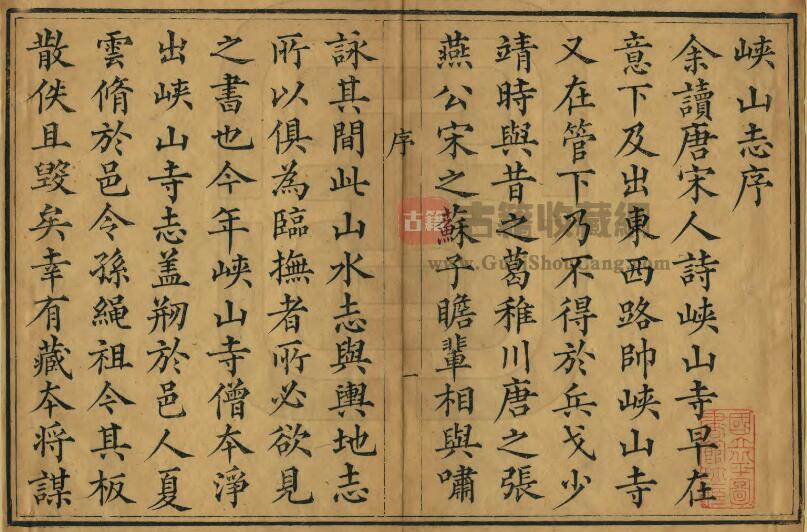 峽山志序
余讀唐宋人詩峽山寺早在
意下及出東西路帥峽山寺
又在管下乃不得於兵戈少
靖時與昔之葛稚川唐之張
燕公宋之蘇子瞻輩相與嘯
序
一
詠其間此山水志與輿地志
所以俱為臨撫者所必欲見
之書也今年峽山寺僧本淨
出峽山寺志盖刱於邑人夏
雲脩於邑令孫繩祖今其板
散佚且毀矣幸有藏本将謀
古籍
古籍收藏網
www.GuJiShouCang.com